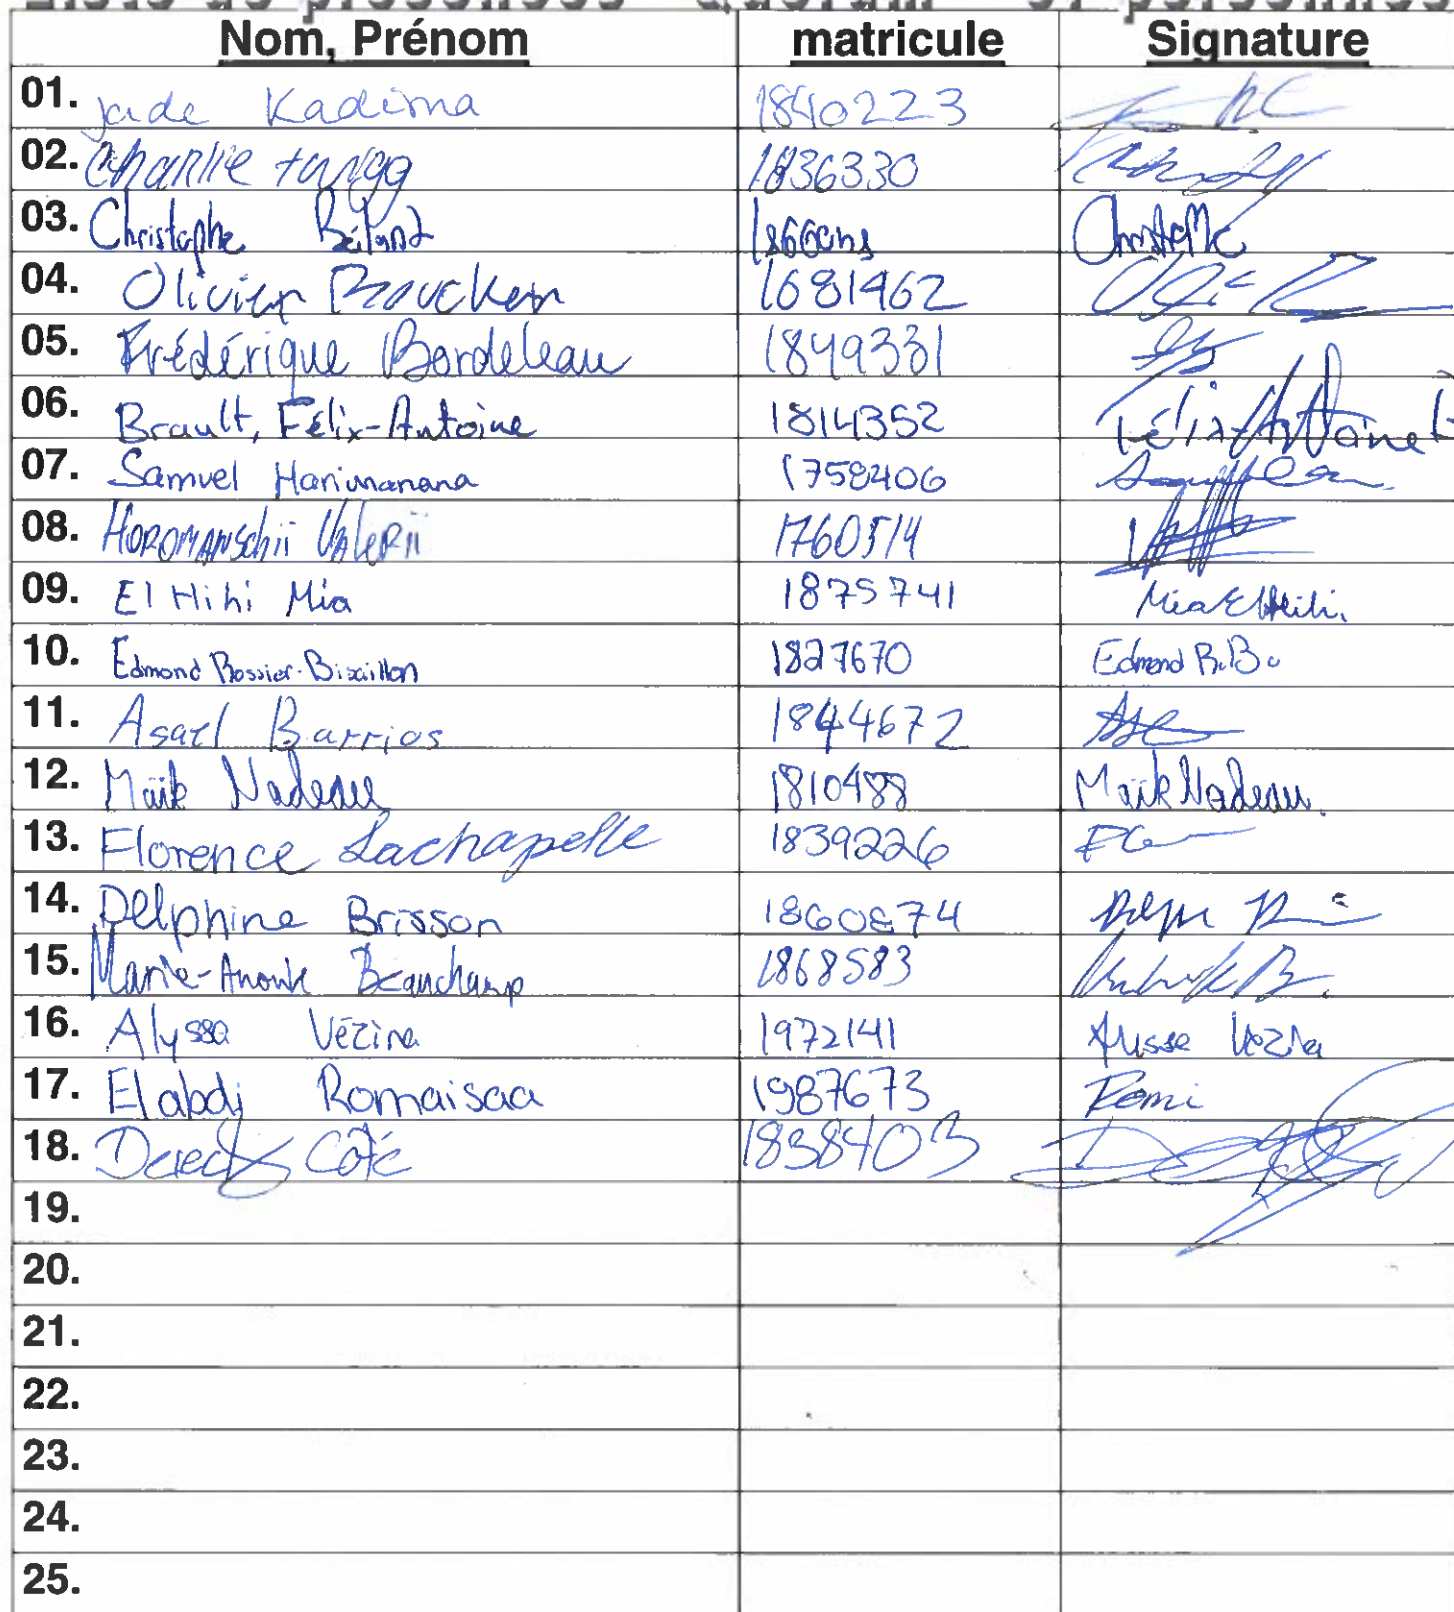 Liste de présences Quorum 51 personnes
Nom, Prénom matricule Signature
01. jade Kadima 1840223
02. Charlie tungg 1836330
03. Christophe Béland
04. Olivier Brouckem 1681462
05. Frédérique Bordeleau 1849331
06. Brault, Félix-Antoine 1814352 Félix-Antoine B
07. Samuel Harimanana 1758406
08. HOROMANSchii VALeRii 1760514
09. El Hihi Mia 1875741 Mia El Hihi
10. Edmond Bossier-Bisaillon 1827670 Edmond B.B
11. Asael Barrios 1844672
12. Maïk Nadeau 1810488 Maïk Nadeau
13. Florence Lachapelle 1839226
14. Delphine Brisson 1860874
15. Marie-Anouk Beauchamp 1868583
16. Alyssa Vézina 1972141 Alyssa Vézina
17. Elabdi Romaisaa 1987673 Romi
18. Dereck Côté 1838403
19.
20.
21.
22.
23.
24.
25.